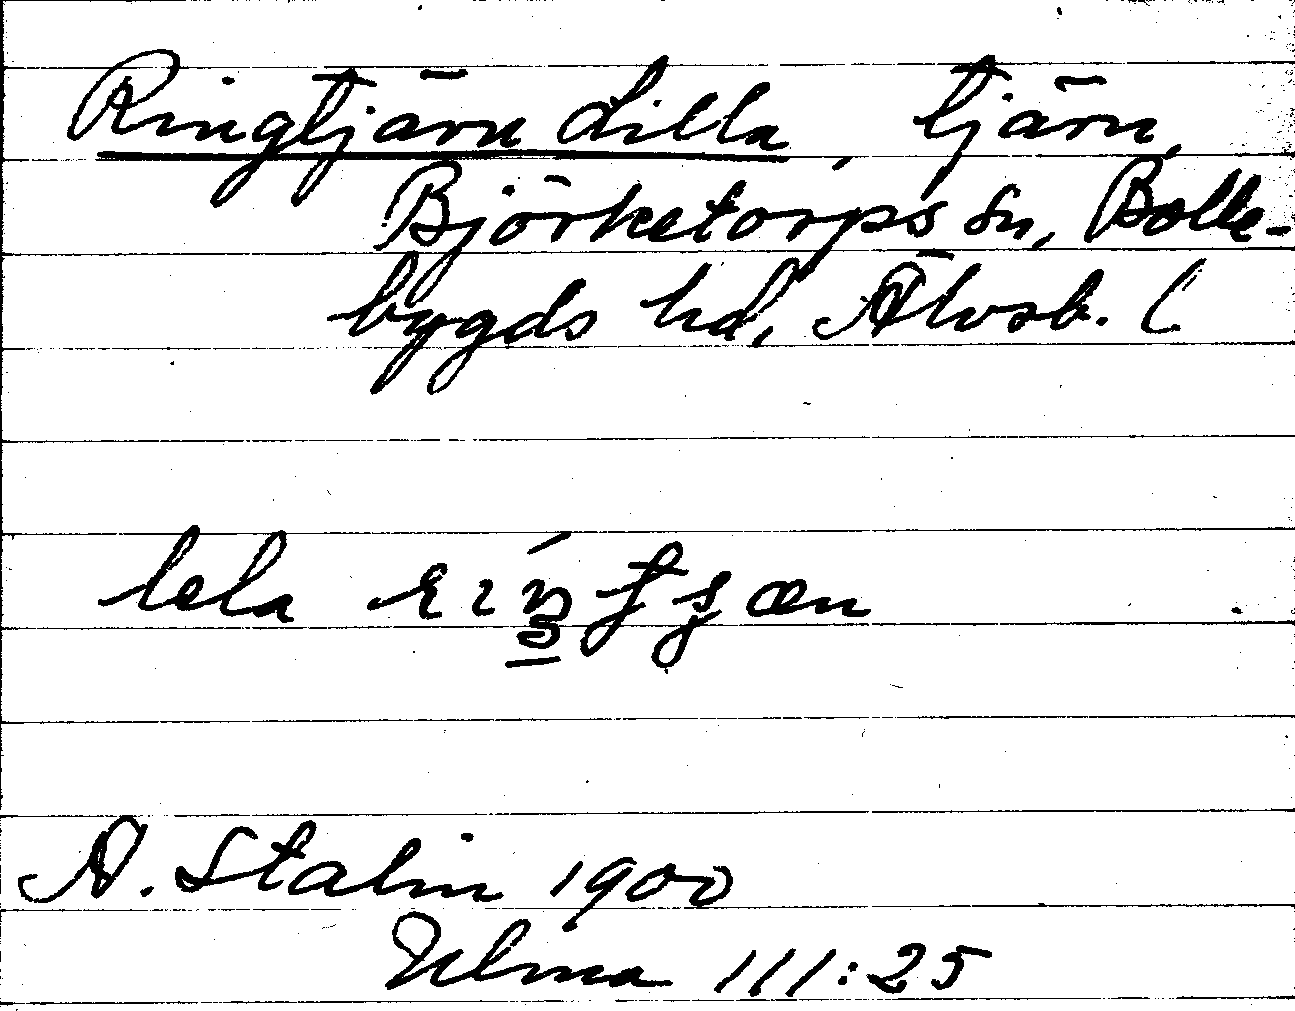 Ringtjärn Lilla, tjärn,
Björketorps sn, Bolle-
bygds hd, Älvsb. l
lela
A. Stalin 1900
Ulma 111:25